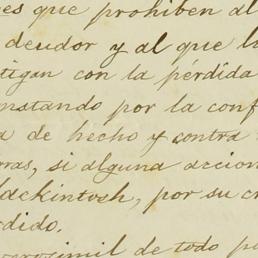 es que prohiben al
deudor y al que l
tigan con la pérdida
nstando por la conf
a de hecho y contra
rras, si alguna accion
ackintosh, por su c
dido.
verosimil de todo p